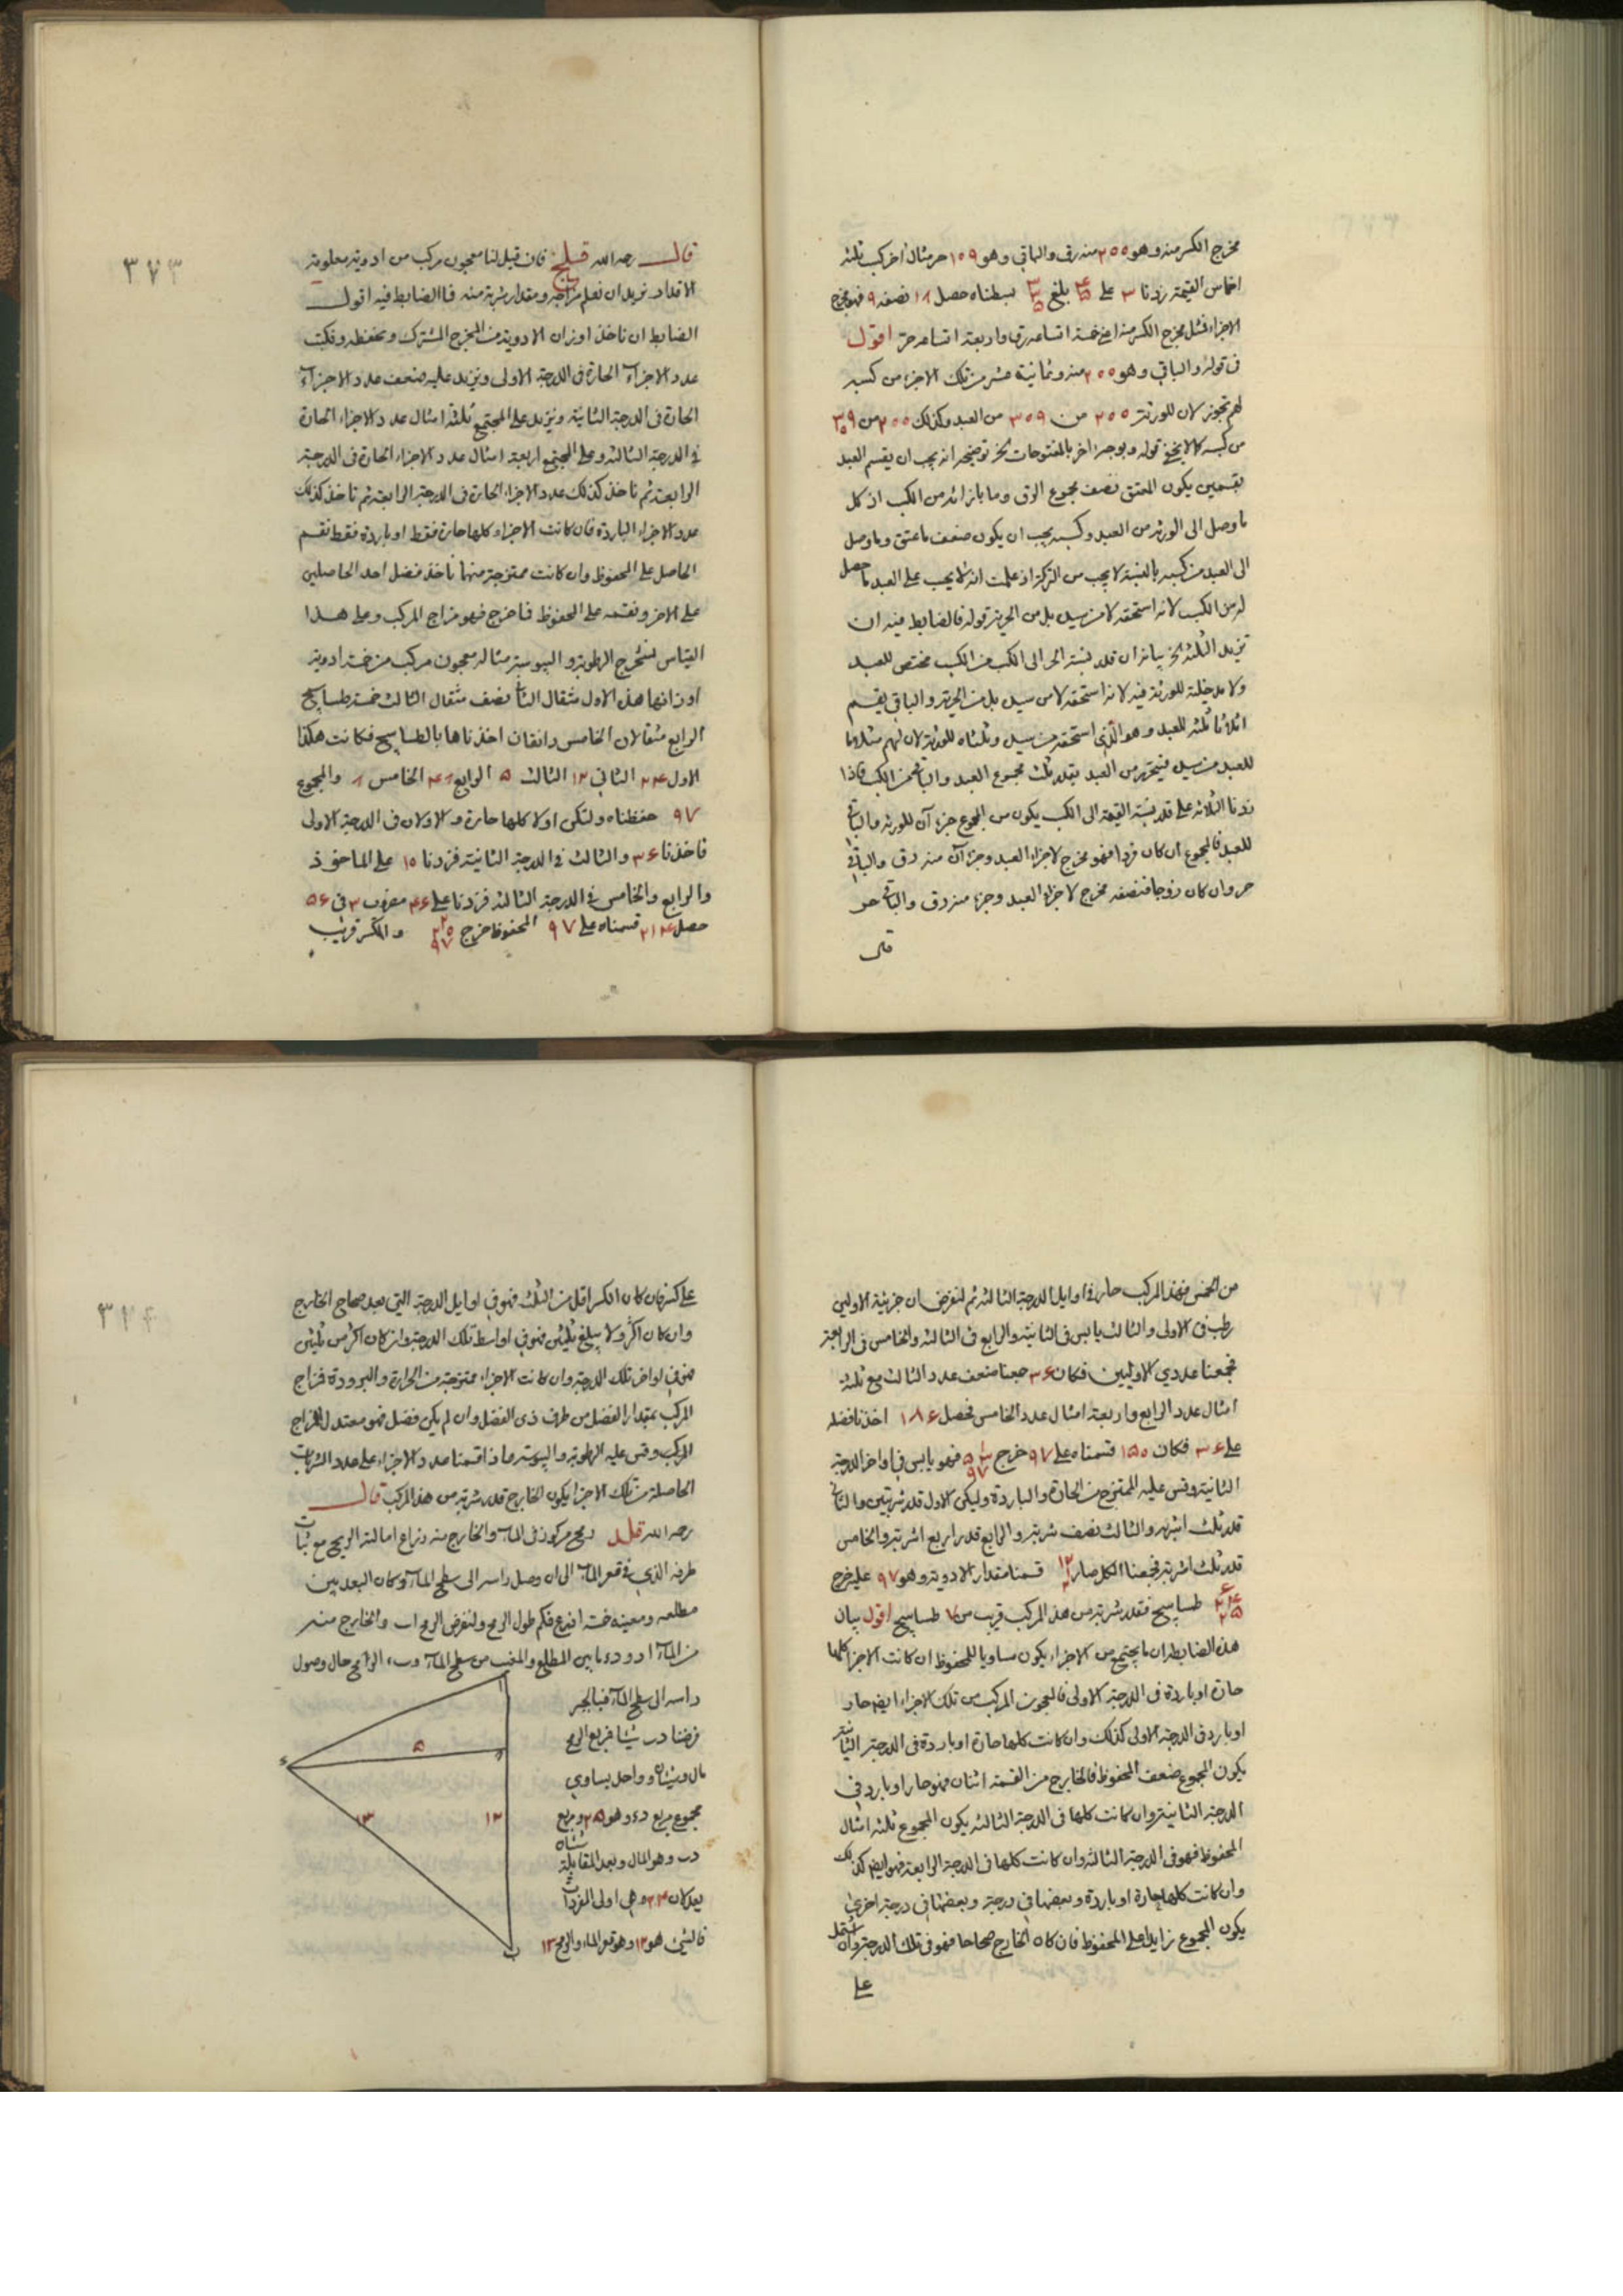 مخرج الكسر منه وهو ٢٠٠ منه رق والباقي وهو ١٥٩ حر مثال اخر كسب ثلثة
اخماس القيمة زدنا ٣ على بلغ بسطناه حصل ١٨ نصفه ٩ فهو مخرج
الاجزاء فمثل مخرج الكسر منه اعني خمسة اتساعه رق واربعة اتساعه حر اقول
في قوله والباقي وهو ٢٠٠ منه وثمانية عشر من تلك الاجزاء من كسبه
لهم تجوز لان للورثة ٢٠٠ من ٣٥٩ من العبد وكذلك ٢٠٠ من ٣٥٩
من كسبه كما لا يخفى قوله وبوجه اخر بالمفتوحات الخ توضيحه انه يجب ان يقسم العبد
بقسمين يكون المعتق نصف مجموع الرق وما بازائه من الكسب اذ كل
ما وصل الى الورثة من العبد وكسبه يجب ان يكون ضعف ما عتق وما وصل
الى العبد من كسبه بالنسبة لا يجب من التركة اذ علمت انه لا يجب على العبد ما حصل
له من الكسب لانه استحقه لا من سيل بل من الحرية قوله فالضابط فيه ان
تزيد الثلثة الخ بيانه ان قدر نسبة الحر الى الكسب من الكسب مختص للعبد
ولا مدخلية للورثة فيه لانه استحقه لا من سيل بل من الحرية والباقي يقسم
اثلاثا ثلثه للعبد وهو الذي استحقه من سيل وثلثاه للورثة لان لهم مثلا ما
للعبد من سيل فيتحرر من العبد بقدر ثلث مجموع العبد والباقي من الكسب فاذا
زدنا الثلاثة على قدر نسبة القيمة الى الكسب يكون من المجموع جزءآن للورثة والباقي
للعبد فالمجموع ان كان فردا فهو مخرج لاجزاء العبد وجزءآن منه رق والباقي
حر وان كان زوجا فنصفه مخرج لاجزاء العبد وجزء منه رق والباقي حر
قال
٣٧٣
قال رحمه الله فان قيل لنا معجون مركب من ادوية معلومة
الاقدار نريد ان نعلم مزاجه ومقدار شربة منه فما الضابط فيه اقول
الضابط ان ناخذ اوزان الادوية من المخرج المشترك ونحفظه ونكتب
عدد الاجزآء الحارة في الدرجة الاولى ونزيد عليه ضعف عدد الاجزآء
الحارة في الدرجة الثانية ونزيد على المجتمع ثلثة امثال عدد الاجزاء الحارة
في الدرجة الثالثة وعلى المجتمع اربعة امثال عدد الاجزاء الحارة في الدرجة
الرابعة ثم ناخذ كذلك عدد الاجزاء الحارة في الدرجة الرابعة ثم ناخذ كذلك
عدد الاجزاء الباردة فان كانت الاجزاء كلها حارة فقط او باردة فقط نقسم
الحاصل على المحفوظ وان كانت ممتزجة منهما ناخذ فضل احد الحاصلين
على الاخر ونقسمه على المحفوظ فما خرج فهو مزاج المركب وعلى هذا
القياس نستخرج الرطوبة واليبوسة مثاله معجون مركب من خمسة ادوية
اوزانها هذه الاول مثقال الثاني نصف مثقال الثالث خمسة طساسيج
الرابع مثقالان الخامس دانقان اخذناها بالطساسيج فكانت هكذا
الاول ٢٤ الثاني ١٢ الثالث ٥ الرابع ٤٨ الخامس ٨ والمجموع
٩٧ حفظناه ولتكن اولا كلها حارة والاولان في الدرجة الاولى
فاخذنا ٣٦ والثالث في الدرجة الثانية فزدنا ١٥ على الماخوذ
والرابع والخامس في الدرجة الثالثة فزدنا على ٤٦ مضروب ٣ في ٥٦
حصل ٢١٤ قسمناه على ٩٧ المحفوظ خرج ٢ ٢٠ ٩٧ والكسر قريب
من الخمس فهذا المركب حار في اوايل الدرجة الثالثة ثم لنفرض ان جزئيه الاوليين
رطب في الاولى والثالث يابس في الثانية والرابع في الثالثة والخامس في الرابعة
فجمعنا عددي الاوليين فكان ٣٦ جمعنا ضعف عدد الثالث مع ثلثة
امثال عدد الرابع واربعة امثال عدد الخامس فحصل ١٨٦ اخذنا فضله
على ٣٦ فكان ١٥٠ قسمناه على ٩٧ خرج ١ ٥٣ ٩٧ فهو يابس في اواخر الدرجة
الثانية وقس عليه الممتزج من الحارة والباردة وليكن الاول قدر شربتين والثاني
قدر ثلث اشربة والثالث نصف شربة والرابع قدر اربع اشربة والخامس
قدر ثلث اشربة فجمعنا الكل صار ١٢ ٢ قسمنا مقدار الادوية وهو ٩٧ عليه خرج
طساسيج فقدر شربة من هذا المركب قريب من ٧ طساسيج اقول بيان
هذه الضابطة ان ما يجتمع من الاجزاء يكون مساويا للمحفوظ ان كانت الاجزاء كلها
حارة او باردة في الدرجة الاولى فالمعجون المركب من تلك الاجزاء ايضا حار
او بارد في الدرجة الاولى كذلك وان كانت كلها حارة او باردة في الدرجة الثانية
يكون المجموع ضعف المحفوظ فالخارج من القسمة اثنان فهو حار او بارد في
الدرجة الثانية وان كانت كلها في الدرجة الثالثة يكون المجموع ثلثة امثال
المحفوظ فهو في الدرجة الثالثة وان كانت كلها في الدرجة الرابعة فهو ايضا كذلك
وان كانت كلها حارة او باردة وبعضها في درجة وبعضها في درجة اخرى
يكون المجموع زايدا على المحفوظ فان كان الخارج صحاحا فهو في تلك الدرجة وان اشتمل
على
٣٧٤
على كسر فان كان الكسر اقل من الثلث فهو في اوايل الدرجة التي بعد صحاح الخارج
وان كان اكثر ولا يبلغ ثلثين فهو في اواسط تلك الدرجة وان كان اكثر من ثلثين
فهو في اواخر تلك الدرجة وان كانت الاجزاء ممتزجة من الحرارة والبرودة فمزاج
المركب بمقدار الفضل من طرف ذي الفضل وان لم يكن فضل فهو معتدل المزاج
المركب وقس عليه الرطوبة واليبوسة وما اذا قسمنا عدد الاجزاء على عدد الشربات
الحاصلة من تلك الاجزاء يكون الخارج قدر شربة من هذا المركب قال
رحمه الله رمح مركوز في المآء والخارج منه ذراع امالته الريح مع ثبات
طرفه الذي في قعر المآء الى ان وصل راسه الى سطح المآء وكان البعد بين
مطلعه ومغيبه خمسة اذرع فكم طول الرمح ولنفرض الرمح اب والخارج منه
من المآء اد و دء ما بين المطلع والمغيب من سطح المآء وب ء الرمح حال وصول
راسه الى سطح المآء فبالجبر
فرضنا د ب شيئا فمربع الرمح
مال وشيئان وواحد يساوي
مجموع مربع دء وهو ٢٥ ومربع
دب وهو المال وبعد المقابلة شيئان
يعدلان ٢٤ وهي اولى المفردات
فالشئ هو ١٢ وهو قعر الماء والرمح ١٣
ا
ء
د
٥
١٣
١٢
ب